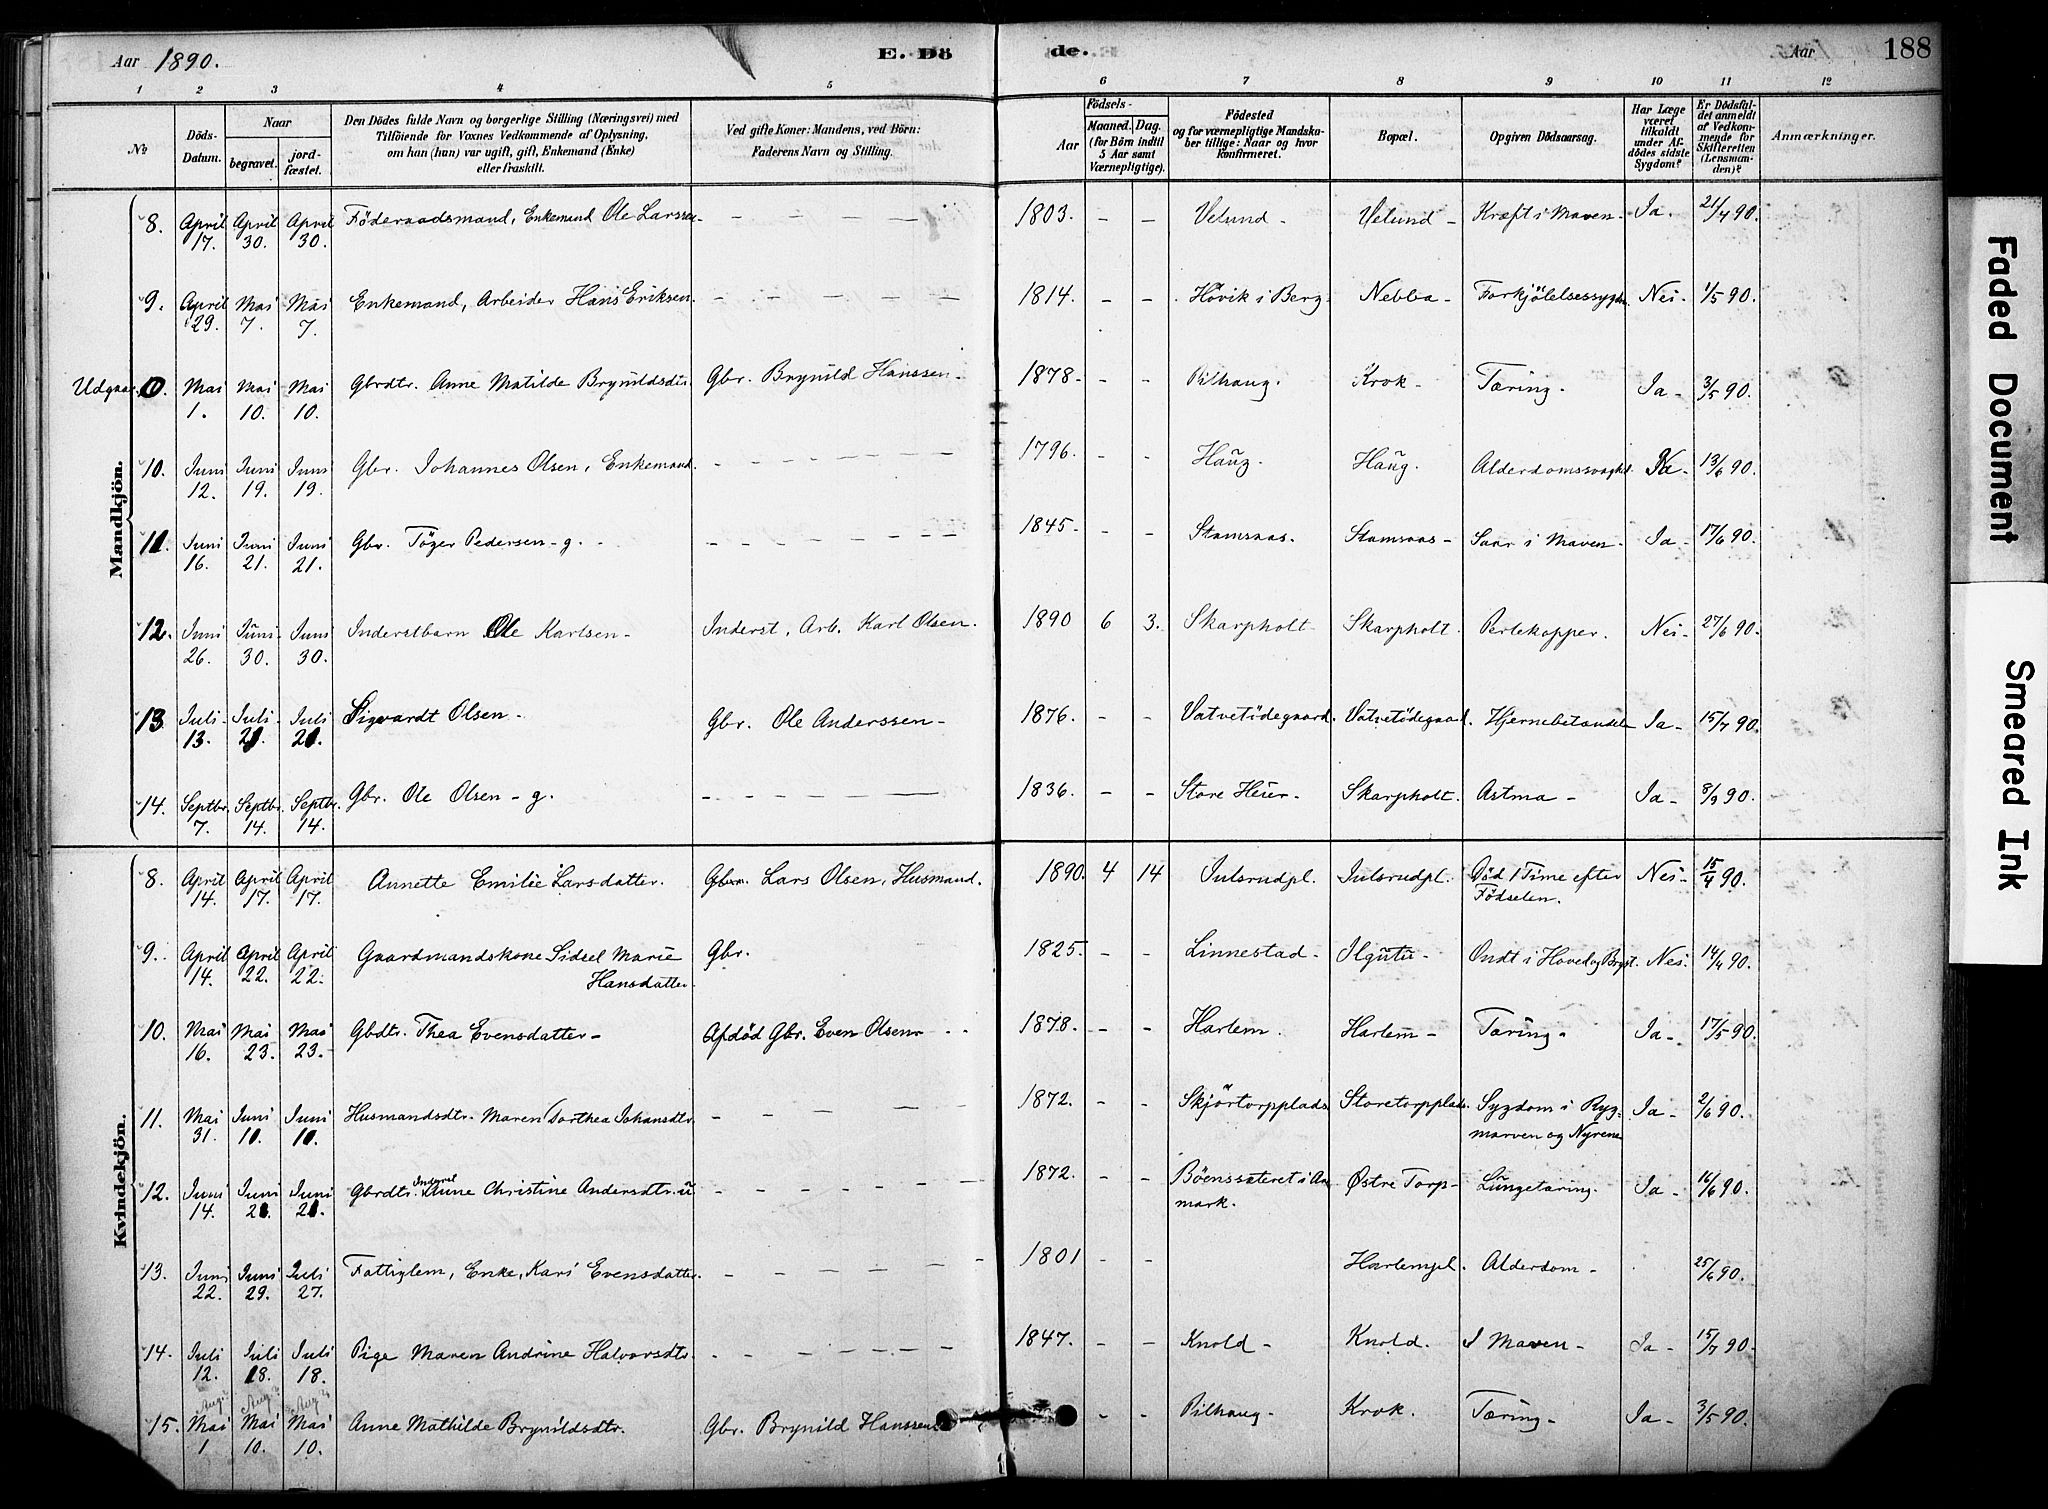 Aar 1890. E. Dö
de. Aar 188
1 2 3 4 5 6 7 8 9 10 11 12
No Döds-Datum. Naar begravet. jord-fæstet. Den Dödes fulde Navn og borgerlige Stilling (Næringsvei) med Tilföiende for Voxnes Vedkommende af Oplysning, om han (hun) var ugift, gift, Enkemand (Enke) eller fraskilt. Ved gifte Koner: Mandens, ved Börn: Faderens Navn og Stilling. Födsels- Aar Maaned. Dag. (for Börn indtil 5 Aar samt Værnepligtige). Födested og for værnepligtige Mandska-ber tillige: Naar og hvor konfirmeret. Bopæl. Opgiven Dödsaarsag. Har Læge været tilkaldt under Af-dödes sidste Sygdom? Er Dödsfal-det anmeldt af Vedkom-mende for Skifteretten (Lensman-den)? Anmærkninger.
Mandkjön.
8. April 17. April 30. April 30. Föderaadsmand, Enkemand Ole Larssen - 1803. - - Velund - Velund - Kræft i Maven - Ja. 21/4 90.
9. April 29. Mai 7. Mai 7. Enkemand, Arbeider Hans Eriksen - 1814. - - Hövik i Berg Nebba - Nei - 1/5 90.
Udgaar 10. Mai 1. Mai 10. Mai 10. Gbrdtr. Anne Matilde Brynildsdtr. Gbr. Brynild Hanssen - 1878 - - - Pilhaug - Krok - Tæring - Ja - 3/5 90.
10. Juni 12. Juni 19. Juni 19. Gbr. Johannes Olsen, Enkemand. 1796. - - Haug. Haug. Ja - 13/6 90.
11. Juni 16. Juni 21. Juni 21. Gbr. Töger Pedersen - g. - 1845 - - - Stamsaas. Stamsaas - Saar i Maven - Ja - 17/6 90.
12. Juni 26. Juni 30. Juni 30. Inderstbarn Ole Karlsen - Inderst, Arb. Karl Olsen. 1890 6 3. Skarpholt - Skarpholt. Perlekopper. Nei - 27/6 90.
13 Juli 13. Juli 21. Juli 21. Sigvardt Olsen - Gbr. Ole Anderssen - 1876. - - Vatvetödegaard. Vatvetödegaard. Ja - 15/7 90.
14. Septbr. 7. Septbr. 14. Septbr. 14. Gbr. Ole Olsen - g. 1836. - - Store Heier - Skarpholt. Astma - Ja - 8/9 90.
Kvindekjön.
8. April 14. April 17. April 17. Annette Emilie Larsdatter. Gbr. Lars Olsen, Husmand. 1890. 4 14 Julsrudpl. Julsrudpl. Död 1 Time efter Födselen. Nei - 15/4 90.
9. April 14. April 22. April 22. Gaardmandskone Sidsel Marie Hansdatter. Gbr. 1825 - - - Linnestad - Ondt i Hoved og Bryst. Nei. 14/4 90.
10. Mai 16. Mai 23. Mai 23. Gbdtr. Thea Evensdatter - Afdöd Gbr. Even Olsen 1878. - - Harlem. Harlem - Tæring - Ja - 17/5 90.
11. Mai 31. Juni 10. Juni 10. Husmandsdtr. Maren Dorthea Johansdtr. 1872. - - Skjörtorpplads Storetorpplads. Sygdom i Ryg-marven og Nyrene Ja - 2/6 90.
12. Juni 14. Juni 21. Juni 21. Gbrdtr. Anne Christine Andersdtr. u 1872. - - Østre Torp - Lungetæring. Ja - 16/6 90.
13. Juni 22. Juni 29. Juli 27. Fattiglem, Enke, Kari Evensdatter. 1801 - - Harlempl. Alderdom - 25/6 90.
14. Juli 12. Juli 18. Juli 18. Pige Maren Andrine Halvorsdtr. 1847. - - Knold - Knold. I Maven - Ja - 15/7 90.
15. Mai 1 Mai 10. Mai 10. Anne Mathilde Brynildsdtr. Gbr. Brynild Hanssen - - Pilhaug - Krok. Tæring - Ja - 3/5 90.
Faded Document
Smeared Ink